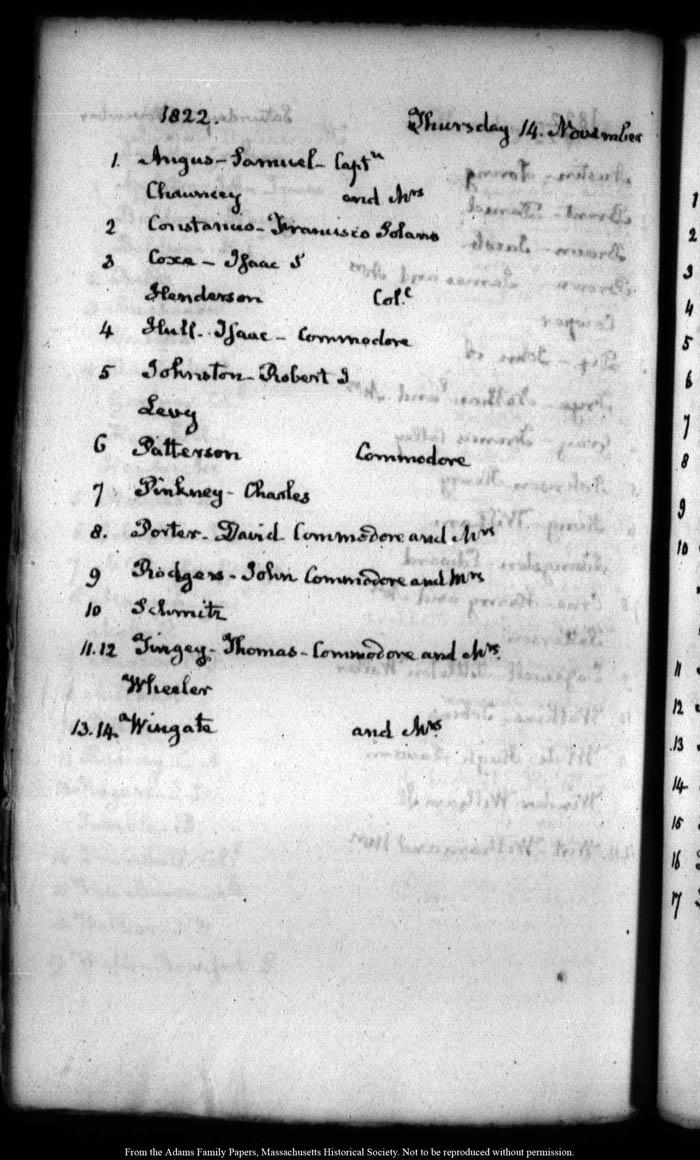 1822. Thursday 14. November
1. Angus - Samuel - Captn
Chauncey and Mrs
2 Constancio - Francisco Solano
3 Coxe - Isaac S
Henderson Col.l
4 Hull - Isaac - Commodore
5 Johnston - Robert I
Levy
6 Patterson Commodore
7 Pinkney - Charles
8. Porter - David Commodore and Mrs
9 Rodgers - John Commodore and Mrs
10 Schmitz
11.12 Tingey - Thomas - Commodore and Mrs.
Wheeler
13.14. Wingate and Mrs
1
2
3
4
5
6
7
8
9
10
11
12
13
14
15
16
17
From the Adams Family Papers, Massachusetts Historical Society. Not to be reproduced without permission.